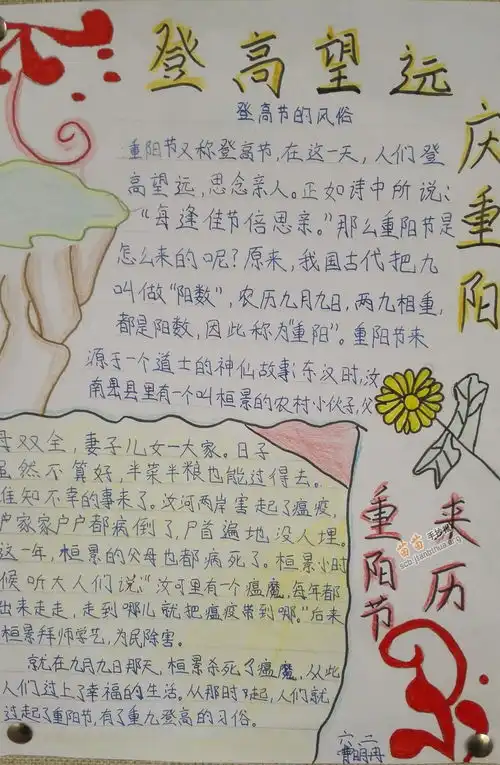 登高望远
登高节的风俗
重阳节又称登高节,在这一天,人们登
高望远,思念亲人。正如诗中所说:
“每逢佳节倍思亲。”那么重阳节是
怎么来的呢?原来,我国古代把九
叫做“阳数”,农历九月九日,两九相重,
都是阳数,因此称为“重阳”。重阳节来
源于一个道士的神仙故事:东汉时,汝
南县里有一个叫桓景的农村小伙子,父
母双全,妻子儿女一大家。日子
虽然不算好,半菜半粮也能过得去。
谁知不幸的事来了。汝河两岸害起了瘟疫,
户家家户户都病倒了,尸首遍地没人埋。
这一年,桓景的父母也都病死了。桓景小时
候听大人们说:“汶可里有一个瘟魔,每年都
出来走走,走到哪儿就把瘟疫带到哪。”后来
桓景拜师学艺,为民除害。
就在九月九日那天,桓景杀死了瘟魔,从此
人们过上了幸福的生活。从那时起,人们就
过起了重阳节,有了重九登高的习俗。
庆重阳
重阳节
来历
六二